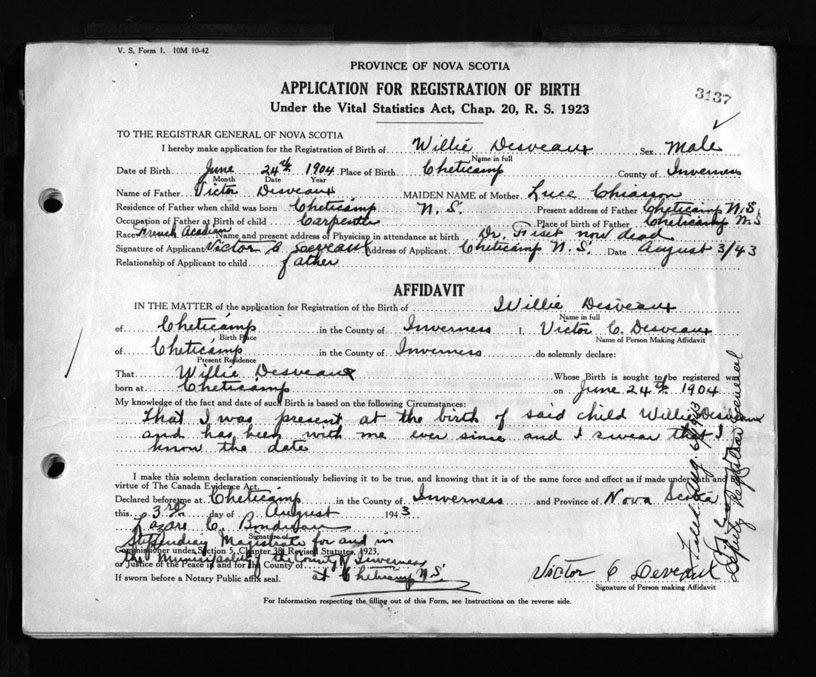 V. S. Form 1. 10M 10-42
PROVINCE OF NOVA SCOTIA
APPLICATION FOR REGISTRATION OF BIRTH
3137
Under the Vital Statistics Act, Chap. 20, R. S. 1923
TO THE REGISTRAR GENERAL OF NOVA SCOTIA
I hereby make application for the Registration of Birth of Willie Desveaux Sex Male
Name in full
Date of Birth June 24th 1904 Place of Birth Cheticamp County of Inverness
Month Date Year
Name of Father Victor Desveaux MAIDEN NAME of Mother Luce Chiasson
Residence of Father when child was born Cheticamp N. S. Present address of Father Cheticamp N.S.
Occupation of Father at Birth of child Carpenter Place of birth of Father Cheticamp N.S
Race French Acadian Name and present address of Physician in attendance at birth Dr. Fiset now dead
Signature of Applicant Victor C Deveaux Address of Applicant Cheticamp N.S. Date August 3/43
Relationship of Applicant to child father
AFFIDAVIT
IN THE MATTER of the application for Registration of the Birth of Willie Desveaux
Name in full
of Cheticamp in the County of Inverness I, Victor C. Desveaux
Birth Place Name of Person Making Affidavit
of Cheticamp in the County of Inverness do solemnly declare:
Present Residence
That Willie Desveaux Whose Birth is sought to be registered was
born at Cheticamp on June 24th 1904
My knowledge of the fact and date of such Birth is based on the following Circumstances:
That I was present at the birth of said child Willie Desveaux
and has been with me ever since and I swear that I
know the date
I make this solemn declaration conscientiously believing it to be true, and knowing that it is of the same force and effect as if made under oath and by
virtue of The Canada Evidence Act.
Declared before me at Cheticamp in the County of Inverness and Province of Nova Scotia
this 3rd day of August 1943
Lazare C.
Signature of
Stipendiary Magistrate for and in
Commissioner under Section 5, Chapter Revised Statutes, 1923,
the Municipality of the County of Inverness
or Justice of the Peace in and for the County of
at Cheticamp N.S.
If sworn before a Notary Public affix seal.
Victor C Deveaux
Signature of Person making Affidavit
For Information respecting the filling out of this Form, see Instructions on the reverse side.
Filed Aug. 1943
Deputy Registrar General